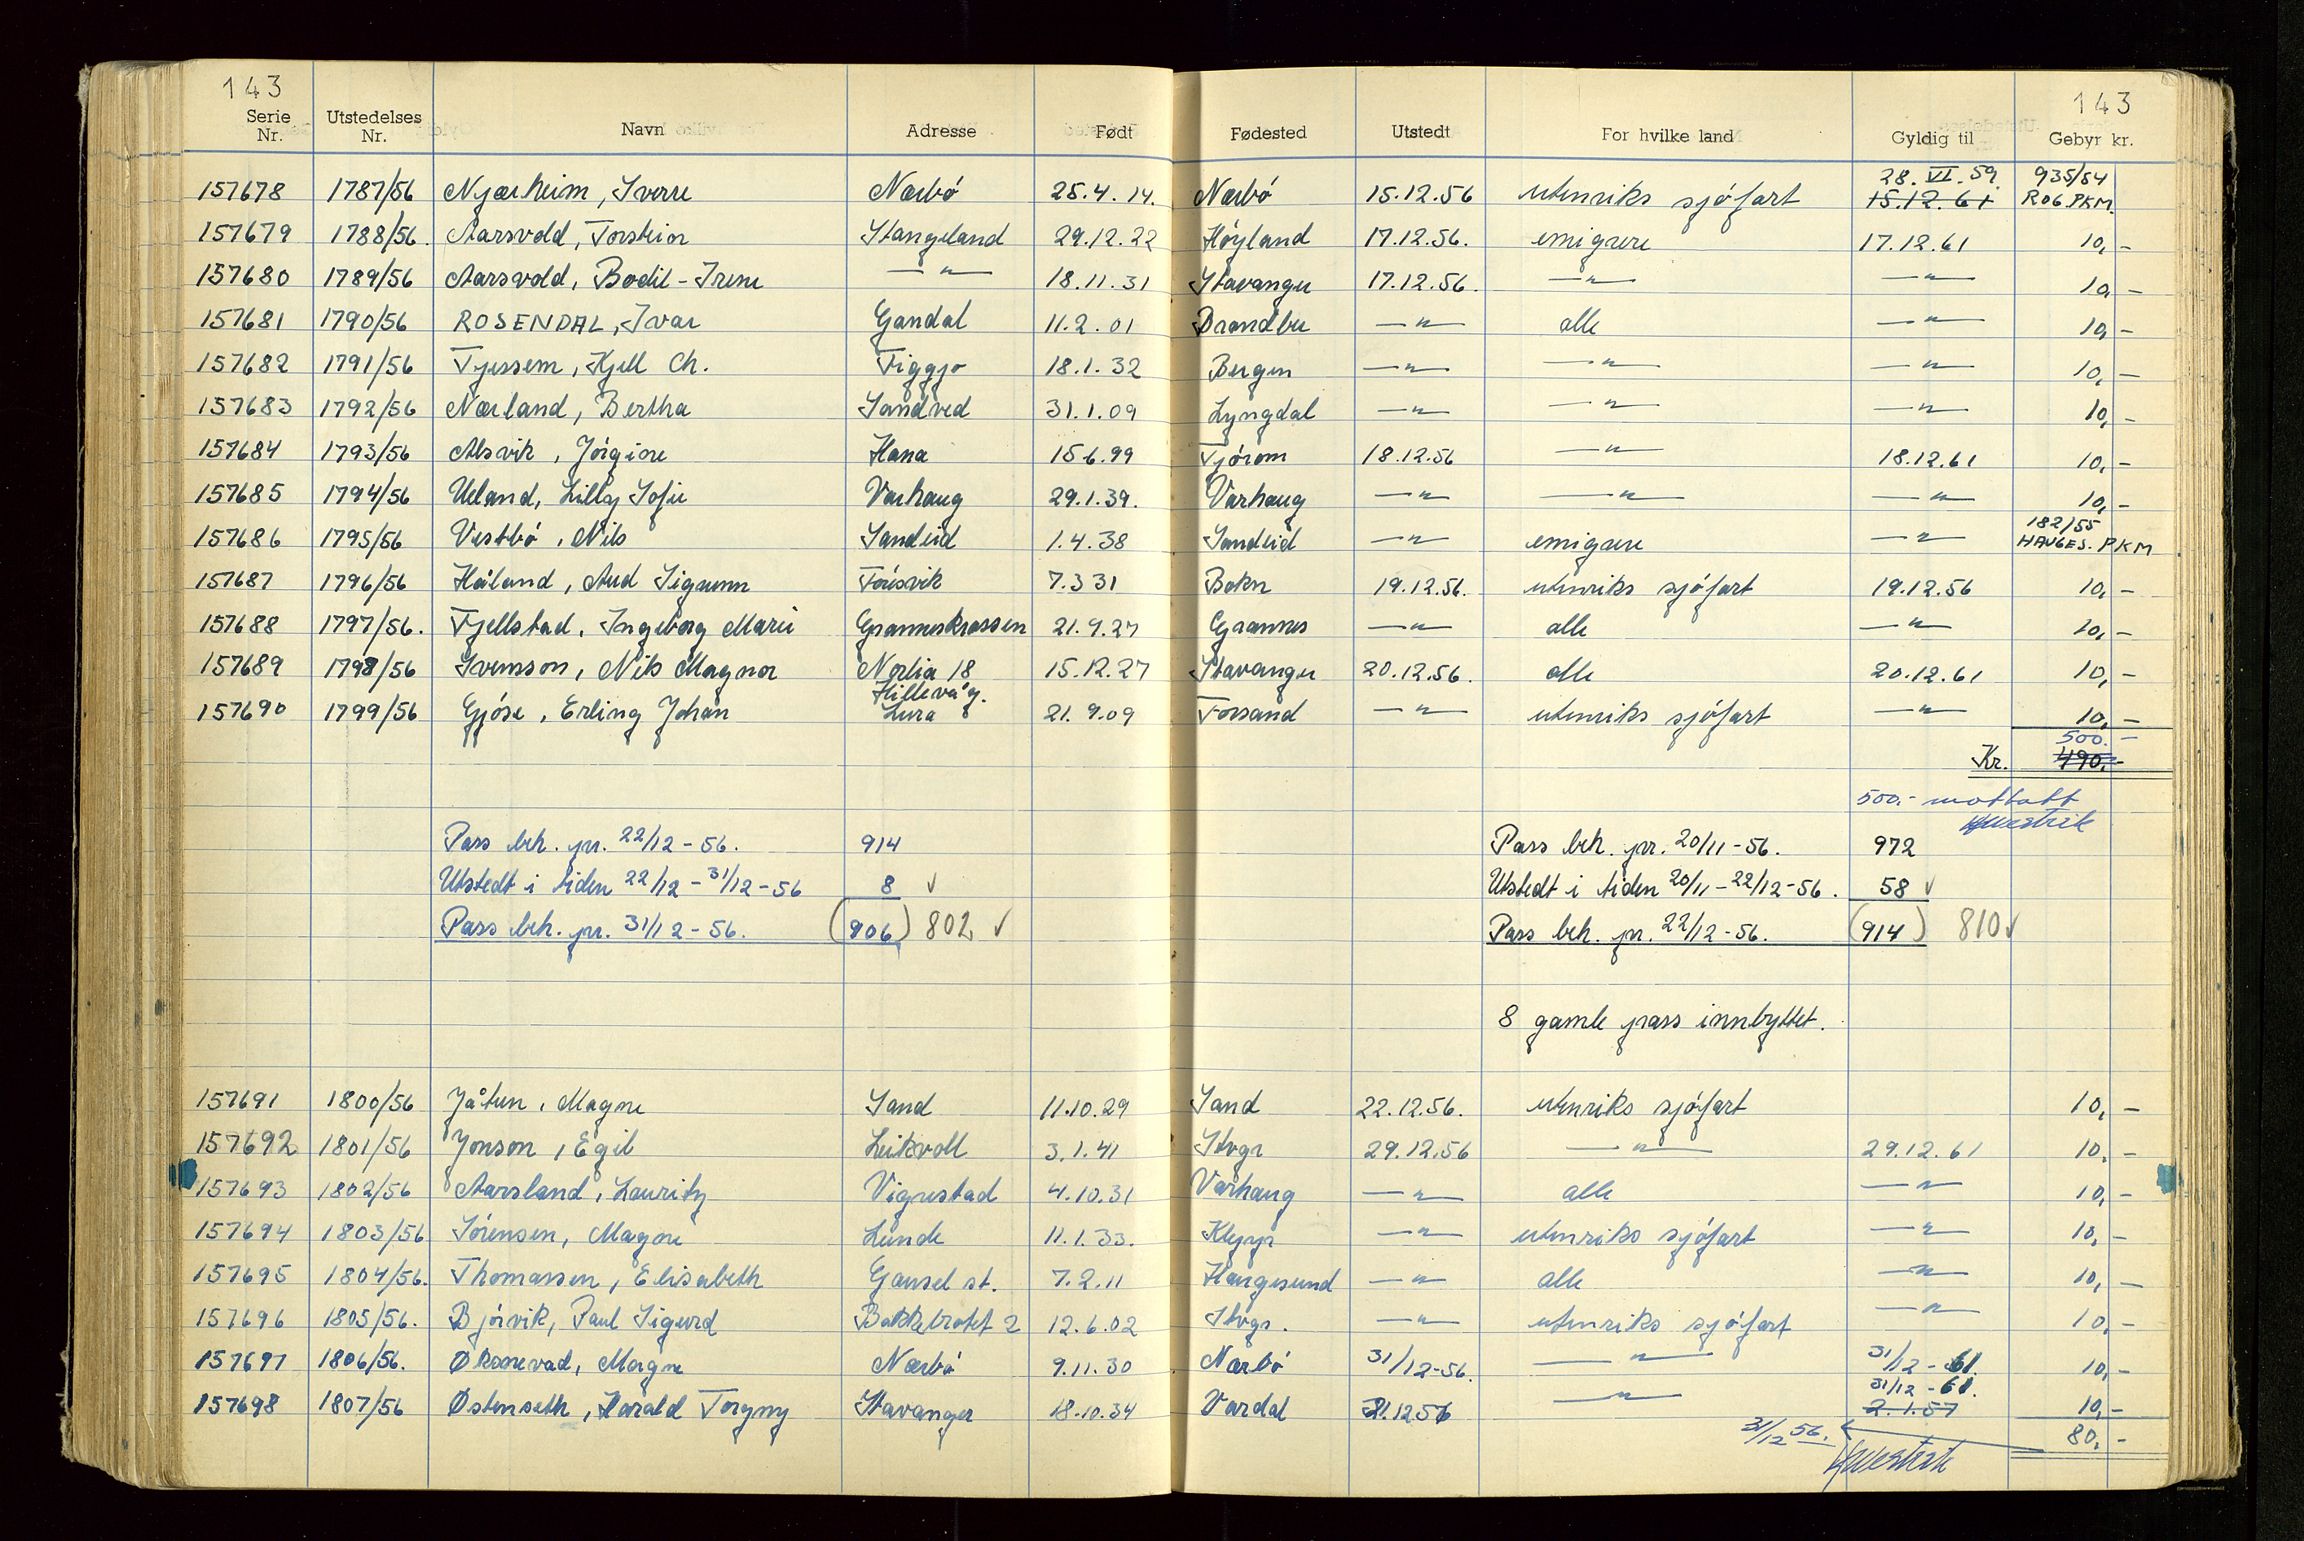 143 143
Serie Nr. Utstedelses Nr. Navn Adresse Født Fødested Utstedt For hvilke land Gyldig til Gebyr kr.
28.VI.59. 935/54
157678 1787/56 Njærheim, Sverre Nærbö 25.4.14. Nærbö 15.12.56 utenriks sjöfart 15.12.61 ROG.PKM.
157679 1788/56. Aarsvold, Torstein Stangeland 29.12.22 Höyland 17.12.56. emigrere 17.12.61 10,-
157680 1789/56 Aarsvold, Bodil-Irene —"— 18.11.31 Stavanger 17.12.56. —"— —"— 10,-
157681 1790/56 ROSENDAL, Ivar Gandal 11.2.01 —"— alle —"— 10,-
157682 1791/56 Tjessem, Kjell Ch. Figgjo 18.1.32 Bergen —"— —"— —"— 10,-
157683 1792/56 Nærland, Bertha Sandved 31.1.09 Lyngdal —"— —"— —"— 10,-
157684 1793/56 Alsvik, Jörgine Hana 15.6.99 Tjörom 18.12.56 —"— 18.12.61 10,-
157685 1794/56 Ueland, Lilly Sofie Varhaug 29.1.39. Varhaug —"— —"— —"— 10,-
182/55
157686 1795/56 Vestbö, Nils Sandeid 1.4.38 Sandeid —"— emigrere —"— HAUGES. PKM
157687 1796/56 Håland, Aud Sigrunn Föresvik 7.3 31 Bokn 19.12.56. utenriks sjöfart 19.12.56 10,-
157688 1797/56. Fjellstad, Ingeborg Marie Granneskrossen 21.9.27 Grannes —"— alle —"— 10,-
157689 1798/56 Svensson, Nils Magnar Norlia 18 15.12.27 Stavanger 20.12.56. alle 20.12.61 10,-
Hillevåg.
157690 1799/56 Gjöse, Erling Johan Lura 21.9.09 Forsand —"— utenriks sjöfart —"— 10,-
500.-
Kr. 490,-
500.- mottatt
Pass beh. pr. 22/12-56. 914 Pass beh. pr. 20/11-56. 972
Utstedt i tiden 22/12-31/12-56 8 ✓ Utstedt i tiden 20/11-22/12-56. 58 ✓
Pass beh. pr. 31/12-56. (906) 802 ✓ Pass beh. pr. 22/12-56. (914) 810 ✓
8 gamle pass innbyttet.
157691 1800/56 Jåtun, Magne Sand 11.10.29 Sand 22.12.56. utenriks sjöfart 10,-
157692 1801/56 Jonson, Egil Leikvoll 3.1.41 Stvgr 29.12.56 —"— 29.12.61 10,-
157693 1802/56 Aarsland, Lauritz Vigrestad 4.10.31 Varhaug —"— alle —"— 10,-
157694 1803/56 Sörensen, Magne Lunde 11.1.33. Klepp —"— utenriks sjöfart —"— 10,-
157695 1804/56. Thomassen, Elisabeth Gausel st. 7.2.11 Haugesund —"— alle —"— 10,-
157696 1805/56. Björvik, Paul Sigurd 12.6.02 Stvgr. —"— utenriks sjöfart —"— 10,-
157697 1806/56. Øksnevad, Magne Nærbö 9.11.30 Nærbö 31/12-56. —"— 31/12-61. 10,-
31/12-61.
157698 1807/56 Østenseth, Harald Torgny Stavanger 18.10.34 Vardal 31.12 56 —"— 2.1.57 10,-
31/12 56. 80,-